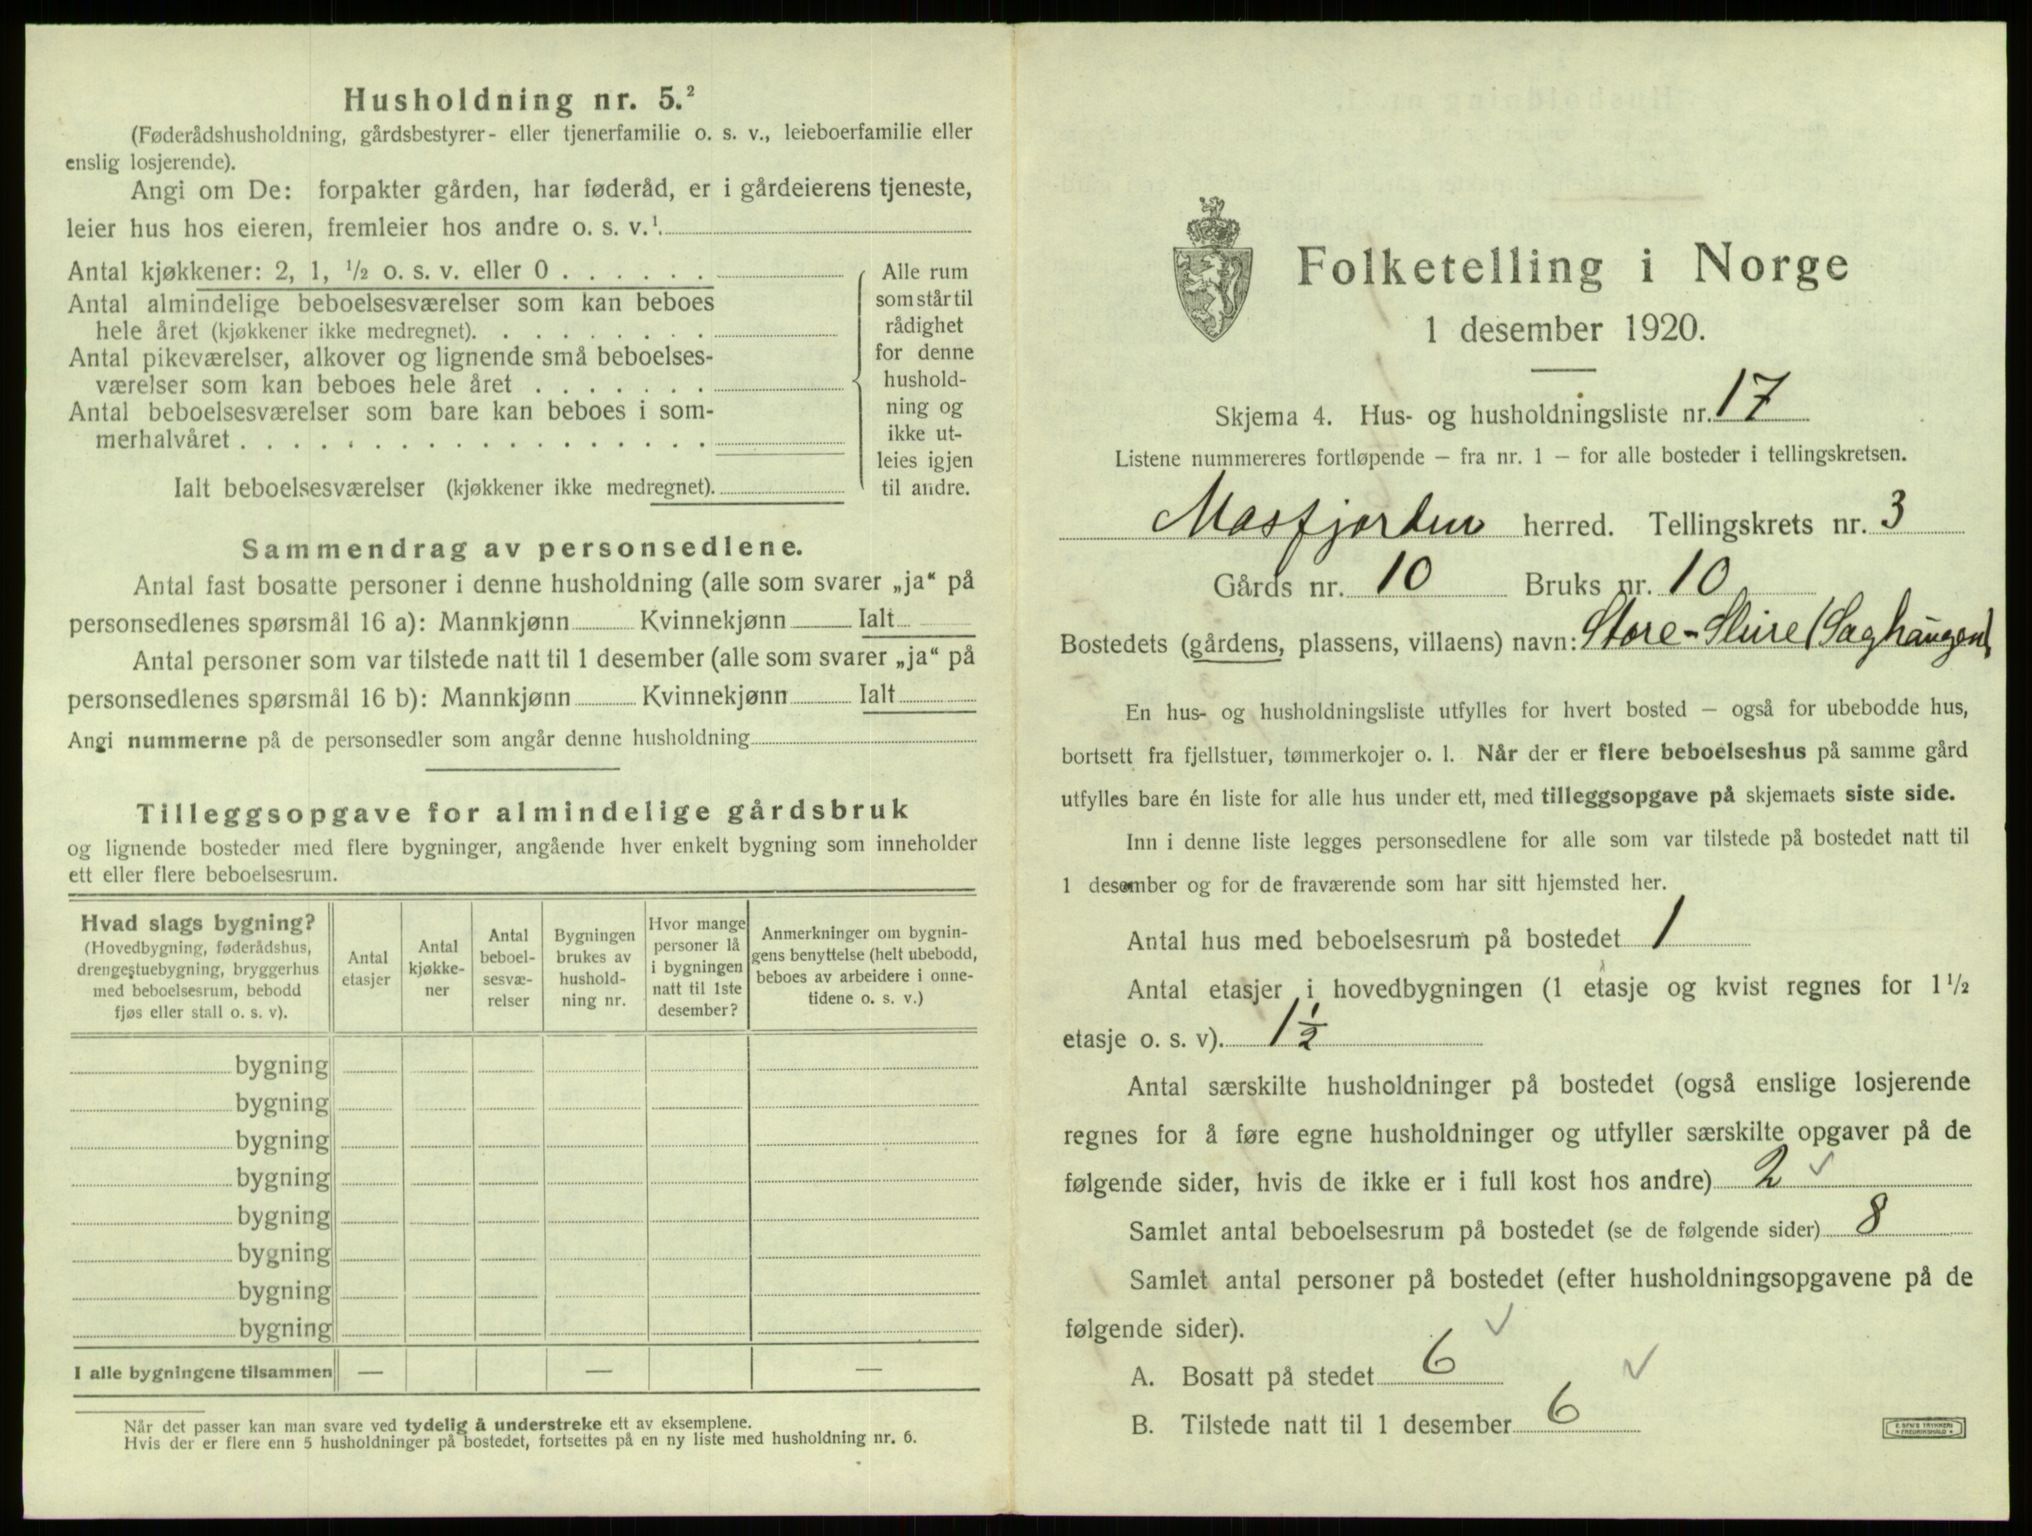 Husholdning nr. 5.²
(Føderådshusholdning, gårdsbestyrer- eller tjenerfamilie o. s. v., leieboerfamilie eller
enslig losjerende).
Angi om De: forpakter gården, har føderåd, er i gårdeierens tjeneste,
leier hus hos eieren, fremleier hos andre o. s. v.¹
Antal kjøkkener: 2, 1, ½ o. s. v. eller 0 . . . . . .
Antal almindelige beboelsesværelser som kan beboes
hele året (kjøkkener ikke medregnet). . . . . . . . .
Antal pikeværelser, alkover og lignende små beboelses-
værelser som kan beboes hele året . . . . . . .
Antal beboelsesværelser som bare kan beboes i som-
merhalvåret . . . . . . . . . . . . . . . . . .
Ialt beboelsesværelser (kjøkkener ikke medregnet).
Alle rum
som står til
rådighet
for denne
hushold-
ning og
ikke ut-
leies igjen
til andre.
Sammendrag av personsedlene.
Antal fast bosatte personer i denne husholdning (alle som svarer „ja“ på
personsedlenes spørsmål 16 a): Mannkjønn Kvinnekjønn Ialt
Antal personer som var tilstede natt til 1 desember (alle som svarer „ja“ på
personsedlenes spørsmål 16 b): Mannkjønn Kvinnekjønn Ialt
Angi nummerne på de personsedler som angår denne husholdning
Tilleggsopgave for almindelige gårdsbruk
og lignende bosteder med flere bygninger, angående hver enkelt bygning som inneholder
ett eller flere beboelsesrum.
Hvad slags bygning?
(Hovedbygning, føderådshus,
drengestuebygning, bryggerhus
med beboelsesrum, bebodd
fjøs eller stall o. s. v).
Antal
etasjer
Antal
kjøkke-
ner
Antal
beboel-
sesvæ-
relser
Bygningen
brukes av
hushold-
ning nr.
Hvor mange
personer lå
i bygningen
natt til 1ste
desember?
Anmerkninger om bygnin-
gens benyttelse (helt ubebodd,
beboes av arbeidere i onne-
tidene o. s. v.)
bygning
bygning
bygning
bygning
bygning
bygning
bygning
bygning
I alle bygningene tilsammen — — —
Når det passer kan man svare ved tydelig å understreke ett av eksemplene.
Hvis der er flere enn 5 husholdninger på bostedet, fortsettes på en ny liste med husholdning nr. 6.
Folketelling i Norge
1 desember 1920.
Skjema 4. Hus- og husholdningsliste nr. 17
Listene nummereres fortløpende – fra nr. 1 – for alle bosteder i tellingskretsen.
Masfjorden herred. Tellingskrets nr. 3
Gårds nr. 10 Bruks nr. 10
Bostedets (gårdens, plassens, villaens) navn: Store-Slire (Saghaugen)
En hus- og husholdningsliste utfylles for hvert bosted – også for ubebodde hus,
bortsett fra fjellstuer, tømmerkojer o. l. Når der er flere beboelseshus på samme gård
utfylles bare én liste for alle hus under ett, med tilleggsopgave på skjemaets siste side.
Inn i denne liste legges personsedlene for alle som var tilstede på bostedet natt til
1 desember og for de fraværende som har sitt hjemsted her.
Antal hus med beboelsesrum på bostedet 1
Antal etasjer i hovedbygningen (1 etasje og kvist regnes for 1½
etasje o. s. v). 1½
Antal særskilte husholdninger på bostedet (også enslige losjerende
regnes for å føre egne husholdninger og utfyller særskilte opgaver på de
følgende sider, hvis de ikke er i full kost hos andre) 2 ✓
Samlet antal beboelsesrum på bostedet (se de følgende sider) 8
Samlet antal personer på bostedet (efter husholdningsopgavene på de
følgende sider). ✓
A. Bosatt på stedet 6 ✓
B. Tilstede natt til 1 desember 6